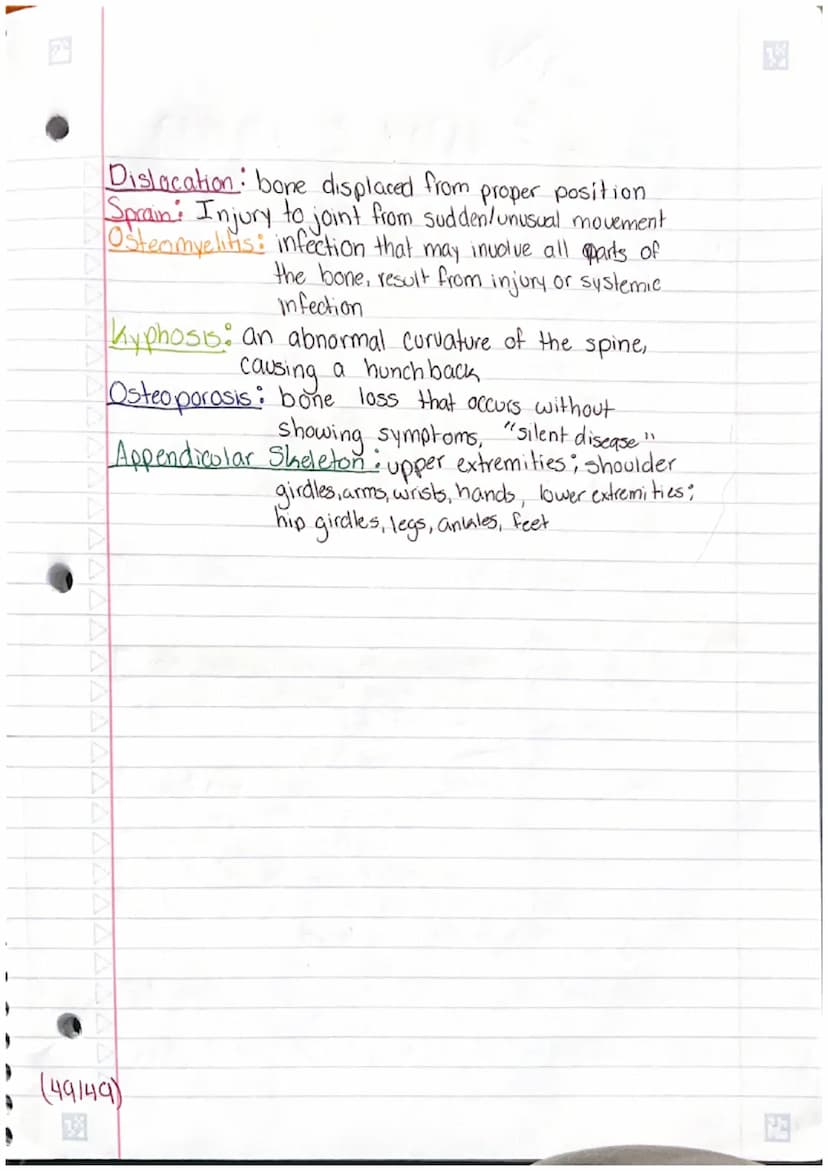 Dislocation: bone displaced from proper position
Sprain: Injury to joint from sudden/unusual movement
Osteomyelitis: infection that may involve all parts of
the bone, result from injury or systemic
infection
Kyphosis: an abnormal curvature of the spine,
causing a hunchback
Osteoporosis: bone loss that occurs without
showing symptoms, "silent disease"
Appendicular Skeleton: upper extremities; shoulder
girdles, arms, wrists, hands, lower extremities;
hip girdles, legs, ankles, feet
(49/49)